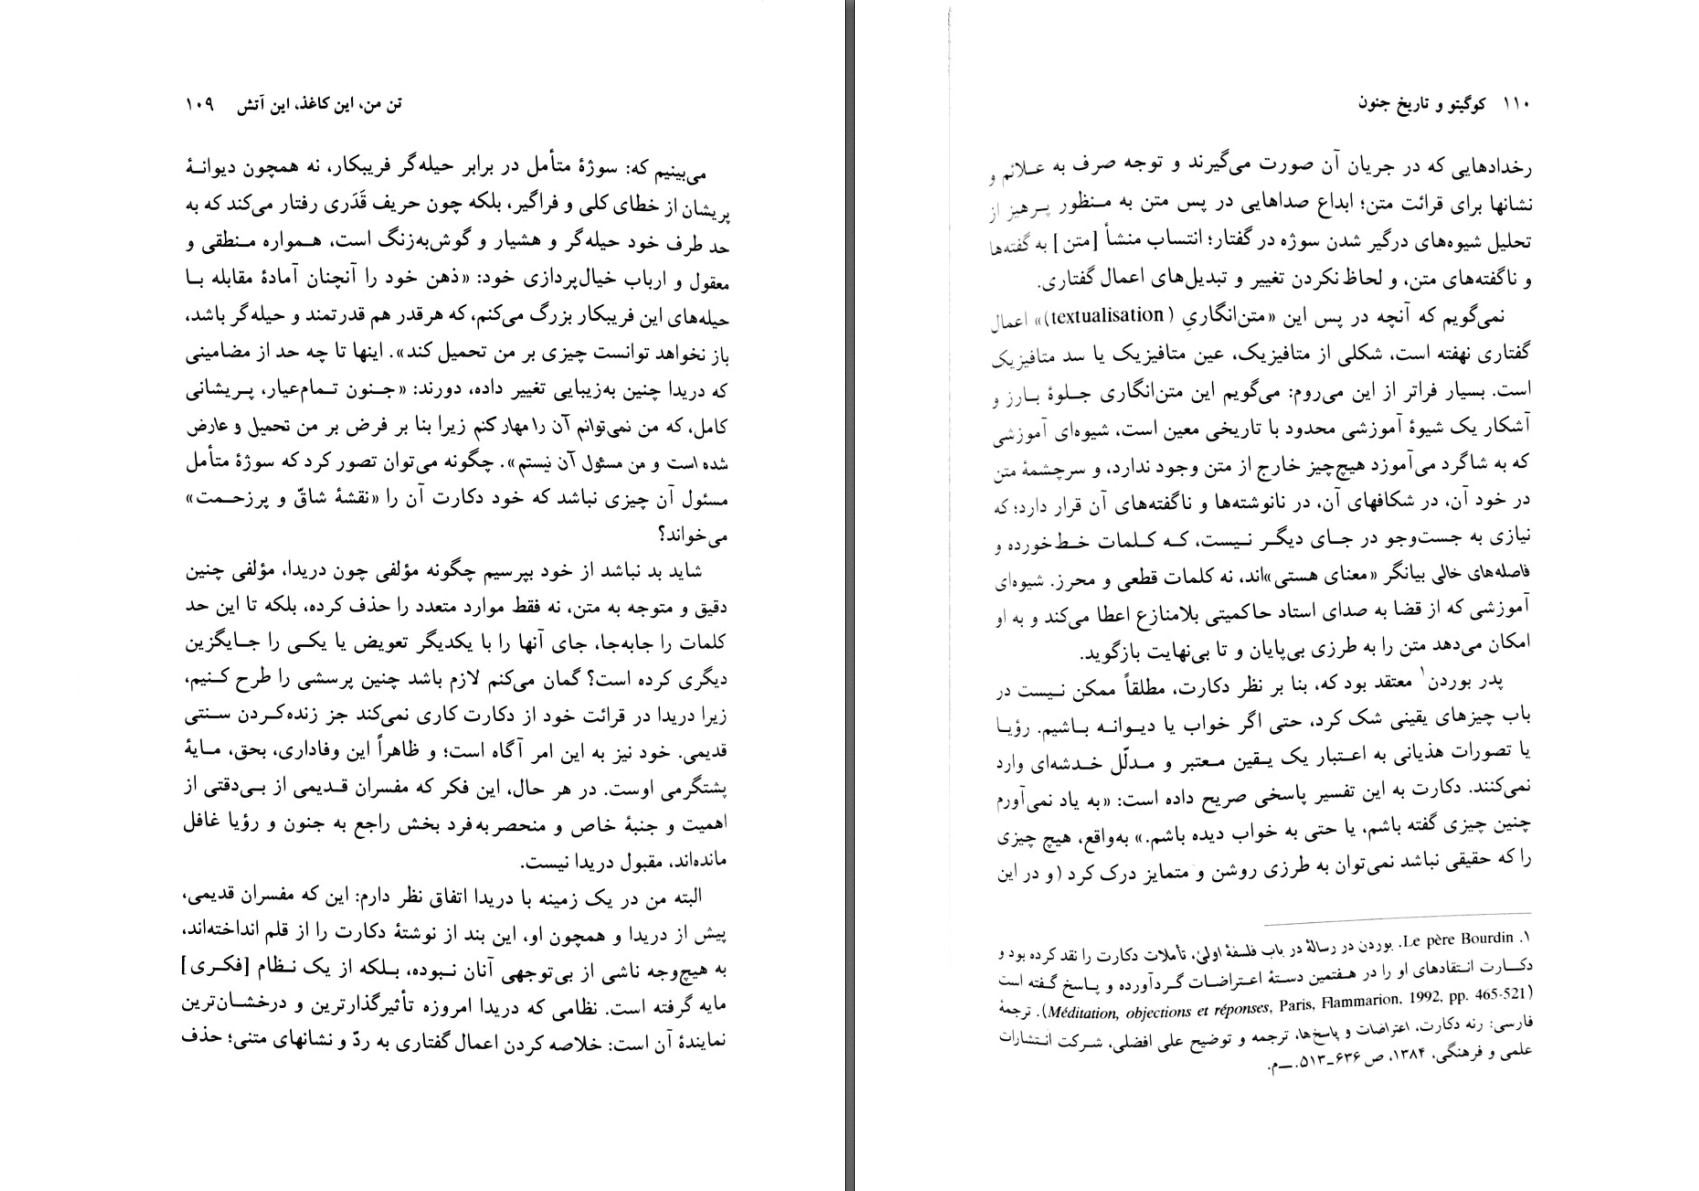 تن من، این کاغذ، این آتش ۱۰۹
می‌بینیم که: سوژهٔ متأمل در برابر حیله‌گر فریبکار، نه همچون دیوانـهٔ
پریشان از خطای کلی و فراگیر، بلکه چون حریف قَدَری رفتار می‌کند که به
حد طرف خود حیله‌گر و هشیار و گوش‌به‌زنگ است، هـمواره مـنطقی و
معقول و ارباب خیال‌پردازی خود: «ذهن خود را آنچنان آمادهٔ مقابله بـا
حیله‌های این فریبکار بزرگ می‌کنم، که هرقدر هم قدرتمند و حیله‌گر باشد،
باز نخواهد توانست چیزی بر من تحمیل کند». اینها تا چه حد از مضامینی
که دریدا چنین به‌زیبایی تغییر داده، دورند: «جـنون تـمام‌عیار، پـریشانی
کامل، که من نمی‌توانم آن را مهار کنم زیرا بنا بر فرض بر من تحمیل و عارض
شده است و من مسئول آن نیستم». چگونه می‌توان تصور کرد که سوژهٔ متأمل
مسئول آن چیزی نباشد که خود دکارت آن را «نقشهٔ شاقّ و پرزحـمت»
می‌خواند؟
شاید بد نباشد از خود بپرسیم چگونه مؤلفی چون دریدا، مؤلفی چنین
دقیق و متوجه به متن، نه فقط موارد متعدد را حذف کرده، بلکه تا این حد
کلمات را جابه‌جا، جای آنها را با یکدیگر تعویض یا یکـی را جـایگزین
دیگری کرده است؟ گمان می‌کنم لازم باشد چنین پرسشی را طرح کـنیم،
زیرا دریدا در قرائت خود از دکارت کاری نمی‌کند جز زنده‌کـردن سـنتی
قدیمی. خود نیز به این امر آگاه است؛ و ظاهراً این وفاداری، بحق، مـایهٔ
پشتگرمی اوست. در هر حال، این فکر که مفسران قـدیمی از بـی‌دقتی از
اهمیت و جنبهٔ خاص و منحصربه‌فرد بخش راجع به جنون و رؤیا غافل
مانده‌اند، مقبول دریدا نیست.
البته من در یک زمینه با دریدا اتفاق نظر دارم: این که مفسران قدیمی،
پیش از دریدا و همچون او، این بند از نوشتهٔ دکارت را از قلم انداخته‌اند،
به هیچ‌وجه ناشی از بی‌توجهی آنان نـبوده، بـلکه از یک نـظام [فکـری]
مایه گرفته است. نظامی که دریدا امروزه تأثیرگذارترین و درخشـان‌ترین
نمایندهٔ آن است: خلاصه کردن اعمال گفتاری به ردّ و نشانهای متنی؛ حذف
۱۱۰ کوگیتو و تاریخ جنون
رخدادهایی که در جریان آن صورت می‌گیرند و توجه صرف به عـلائم و
نشانها برای قرائت متن؛ ابداع صداهایی در پس متن به مـنظور پـرهیز از
تحلیل شیوه‌های درگیر شدن سوژه در گفتار؛ انتساب منشأ [متن] به گفته‌ها
و ناگفته‌های متن، و لحاظ نکردن تغییر و تبدیل‌های اعمال گفتاری.
نمی‌گویم که آنچه در پس این «متن‌انگاریِ (textualisation)» اعمال
گفتاری نهفته است، شکلی از متافیزیک، عین متافیزیک یا سد متافیزیک
است. بسیار فراتر از این می‌روم: می‌گویم این متن‌انگاری جـلوهٔ بـارز و
آشکار یک شیوهٔ آموزشی محدود با تاریخی معین است، شیوه‌ای آموزشی
که به شاگرد می‌آموزد هیچ‌چیز خارج از متن وجود ندارد، و سرچشمهٔ متن
در خود آن، در شکافهای آن، در نانوشته‌ها و ناگفته‌های آن قرار دارد؛ که
نیازی به جست‌وجو در جـای دیگـر نـیست، کـه کـلمات خـط‌خورده و
فاصله‌های خالی بیانگر «معنای هستی»اند، نه کلمات قطعی و محرز. شیوه‌ای
آموزشی که از قضا به صدای استاد حاکمیتی بلامنازع اعطا می‌کند و به او
امکان می‌دهد متن را به طرزی بی‌پایان و تا بی‌نهایت بازگوید.
پدر بوردن۱ معتقد بود که، بنا بر نظر دکارت، مطلقاً ممکن نـیست در
باب چیزهای یقینی شک کرد، حتی اگر خواب یا دیـوانـه بـاشیم. رؤیـا
یا تصورات هذیانی به اعـتبار یک یـقین مـعتبر و مـدلّل خـدشه‌ای وارد
نمی‌کنند. دکارت به این تفسیر پاسخی صریح داده است: «به یاد نمی‌آورم
چنین چیزی گفته باشم، یا حتی به خواب دیده باشم.» به‌واقع، هیچ چیزی
را که حقیقی نباشد نمی‌توان به طرزی روشن و متمایز درک کرد (و در این
۱. Le père Bourdin. بوردن در رسالهٔ در باب فلسفهٔ اولیٰ، تأملات دکارت را نقد کرده بود و
دکـارت انـتقادهای او را در هـفتمین دستهٔ اعـتراضـات گـردآورده و پـاسخ گـفته است
(Méditation, objections et réponses, Paris, Flammarion, 1992, pp. 465-521). ترجمهٔ
فارسی: رنه دکارت، اعتراضات و پاسخ‌ها، ترجمه و توضیح علی افضلی، شـرکت انـتشارات
علمی و فرهنگی، ۱۳۸۴، ص ۶۳۶ـ۵۱۳. ــ م.